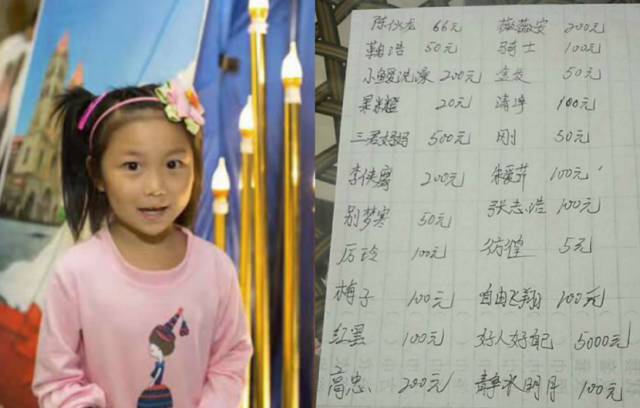 陈仪龙 66元 薇薇安 200元
鞠浩 50元 骑士 100元
小鳄洗澡 200元 金发 50元
果米耀 20元 清净 100元
三君妈妈 500元 刚 50元
李侠露 200元 朱爱萍 100元
别梦寒 50元 张志浩 100元
厉玲 100元 彷徨 5元
梅子 100元 自由飞翔 100元
红罢 100元 好人好自己 5000元
高忠 200元 静水明月 100元